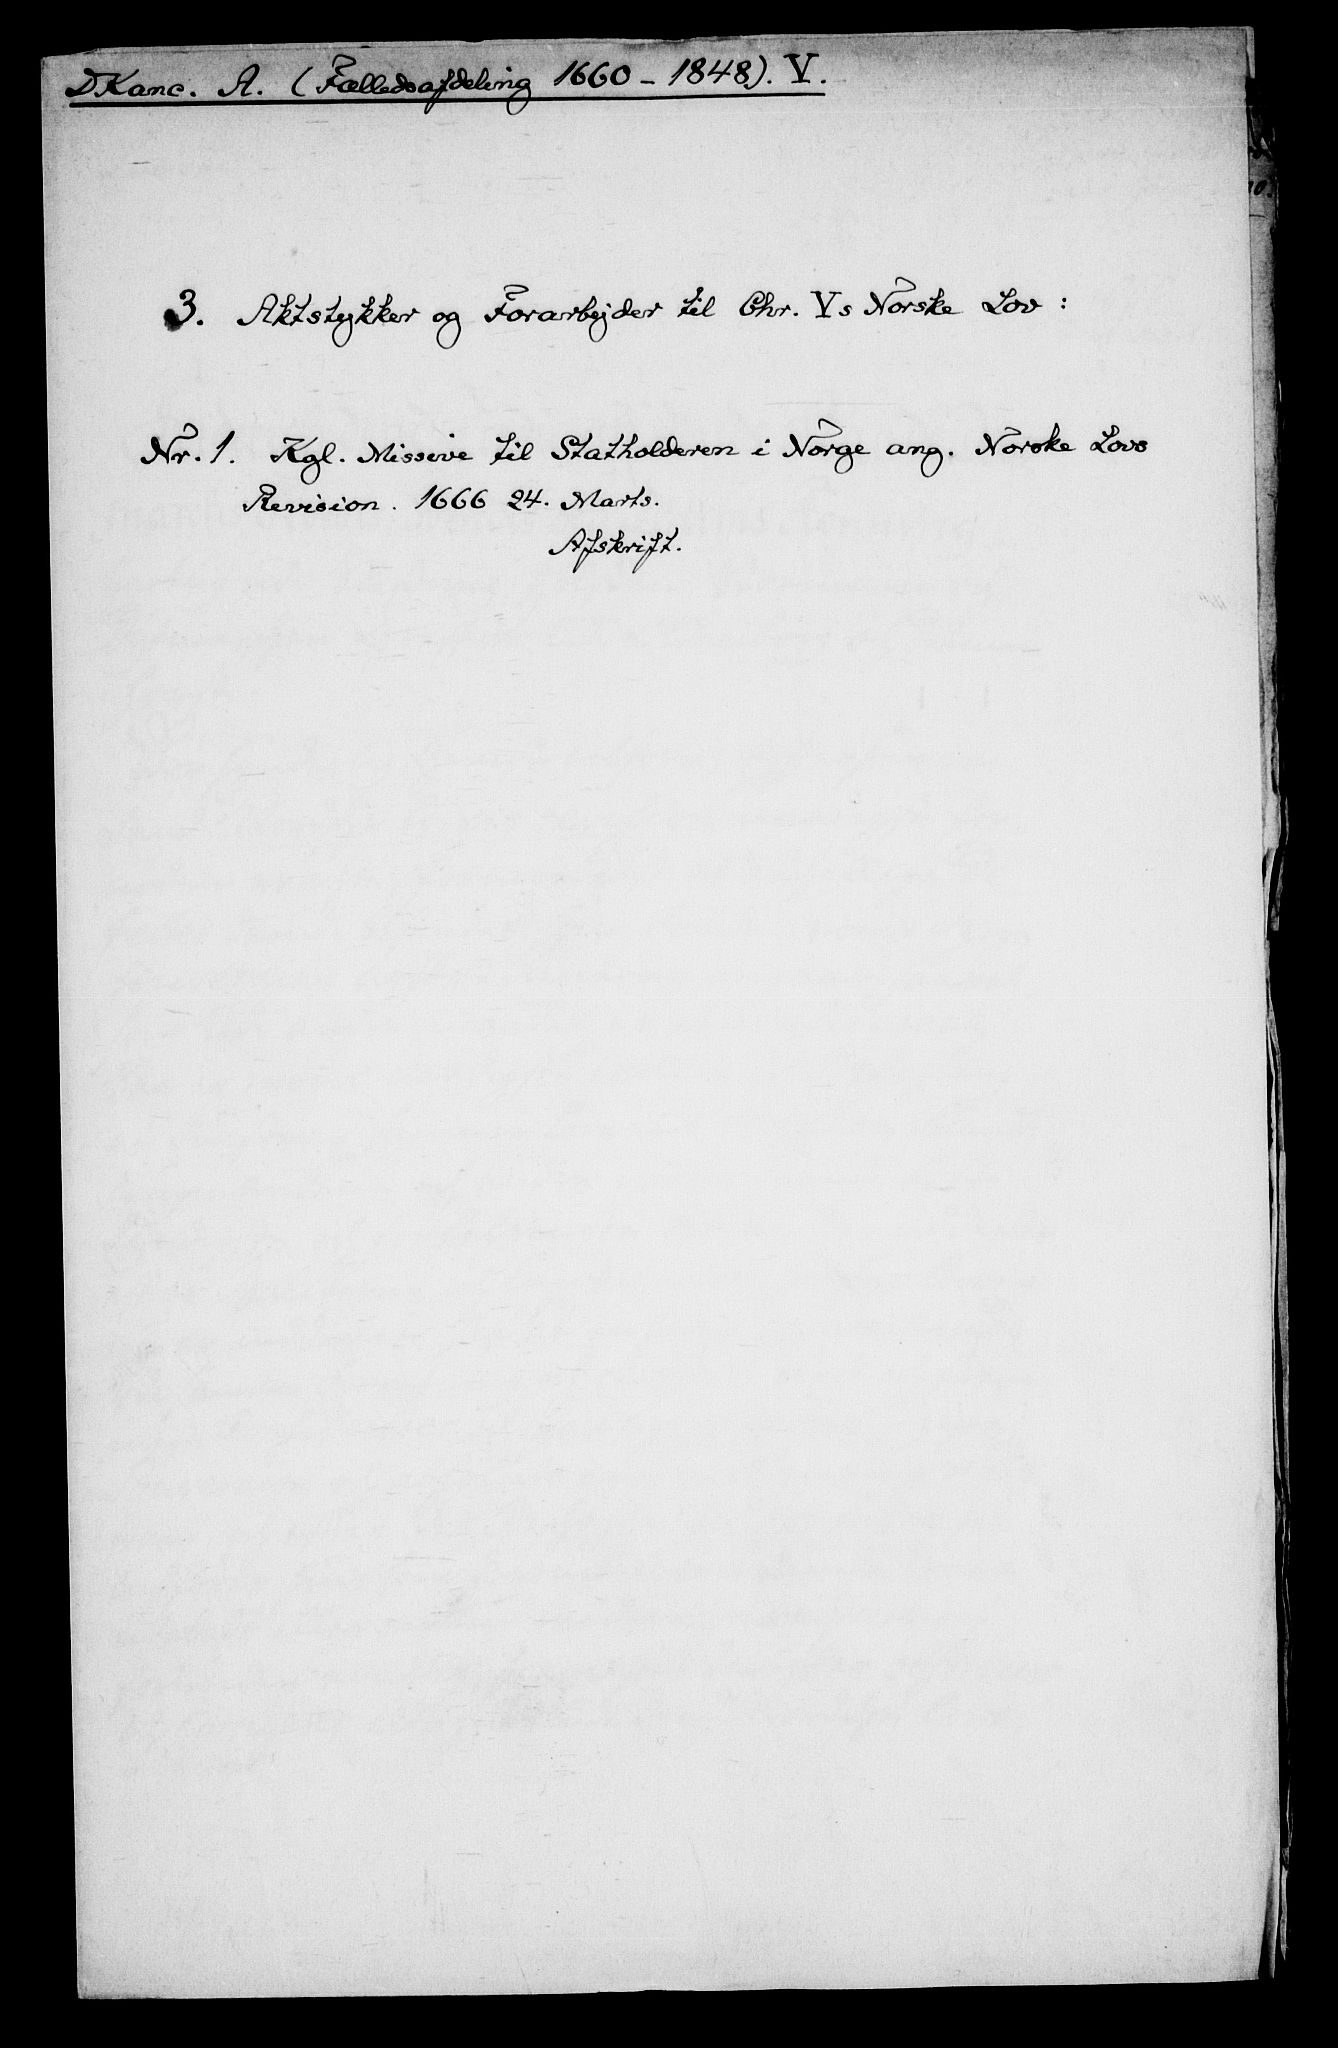 DKanc. A. (Fælledsafdeling 1660 - 1848). V.
3. Aktstykker og Forarbejder til Chr. Vs Norske Lov :
Nr. 1. Kgl. Missive til Statholderen i Norge ang. Norske Lovs
Revision. 1666 24. Marts.
Afskrift.